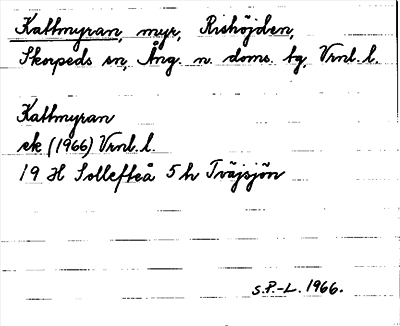 Kattmyran, myr, Rishöjden,
Skorpeds sn, Ång. n. doms. tg, Vrnl. l.
Kattmyran
ek (1966) Vrnl. l.
19 H Sollefteå 5 h Tväjsjön
S.P.-L. 1966.